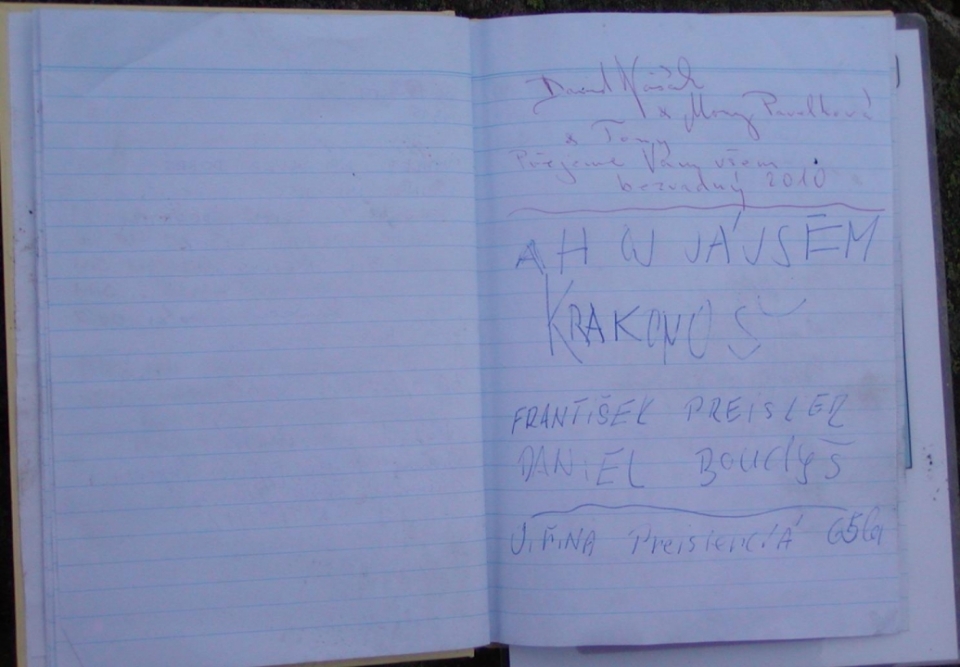 David Vašák
& Mony Pavelková
& Tony
Přejeme Vám všem
bezvadný 2010
AHOJ JÁ JSEM
KRAKONOŠ
FRANTIŠEK PREISLER
DANIEL BOUdyŠ
JIŘINA Preislerová 65let